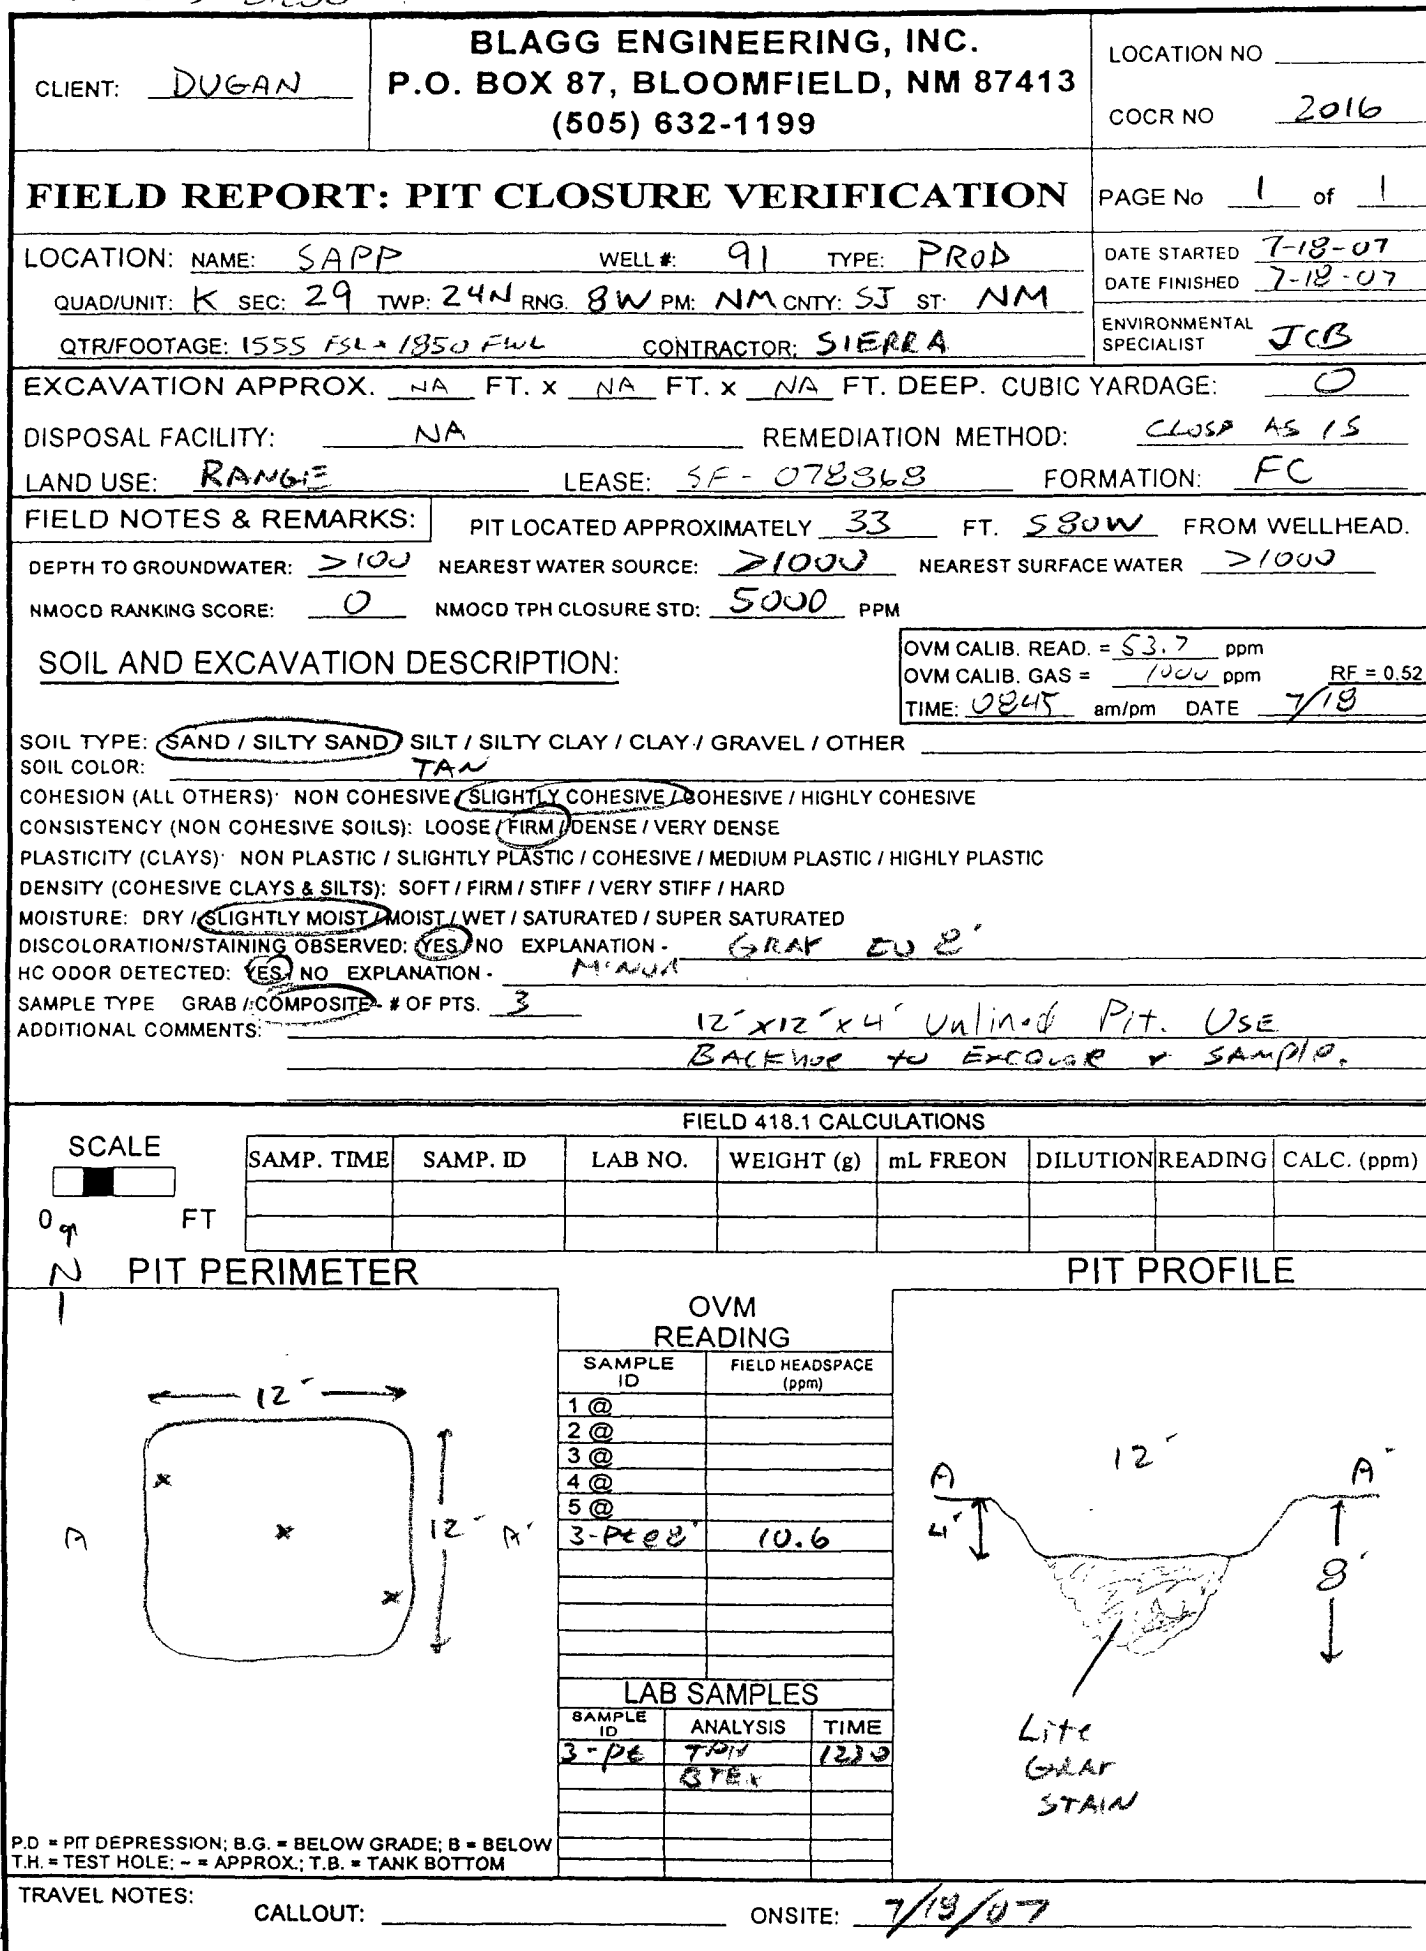 BLAGG ENGINEERING, INC.
P.O. BOX 87, BLOOMFIELD, NM 87413
(505) 632-1199
CLIENT: DUGAN
LOCATION NO
COCR NO 2016
FIELD REPORT: PIT CLOSURE VERIFICATION
PAGE No 1 of 1
LOCATION: NAME: SAPP WELL #: 91 TYPE: PROD
QUAD/UNIT: K SEC: 29 TWP: 24N RNG. 8W PM: NM CNTY: SJ ST· NM
QTR/FOOTAGE: 1555 FSL x 1850 FWL CONTRACTOR: SIERRA
DATE STARTED 7-18-07
DATE FINISHED 7-18-07
ENVIRONMENTAL
SPECIALIST JCB
EXCAVATION APPROX. NA FT. x NA FT. x NA FT. DEEP. CUBIC YARDAGE: 0
DISPOSAL FACILITY: NA REMEDIATION METHOD: CLOSE AS IS
LAND USE: RANGE LEASE: SF-078868 FORMATION: FC
FIELD NOTES & REMARKS: PIT LOCATED APPROXIMATELY 33 FT. S80W FROM WELLHEAD.
DEPTH TO GROUNDWATER: >100 NEAREST WATER SOURCE: >1000 NEAREST SURFACE WATER >1000
NMOCD RANKING SCORE: 0 NMOCD TPH CLOSURE STD: 5000 PPM
SOIL AND EXCAVATION DESCRIPTION:
OVM CALIB. READ. = 53.7 ppm
OVM CALIB. GAS = 100 ppm RF = 0.52
TIME: 0845 am/pm DATE 7/18
SOIL TYPE: SAND / SILTY SAND / SILT / SILTY CLAY / CLAY / GRAVEL / OTHER
SOIL COLOR: TAN
COHESION (ALL OTHERS): NON COHESIVE / SLIGHTLY COHESIVE / COHESIVE / HIGHLY COHESIVE
CONSISTENCY (NON COHESIVE SOILS): LOOSE / FIRM / DENSE / VERY DENSE
PLASTICITY (CLAYS): NON PLASTIC / SLIGHTLY PLASTIC / COHESIVE / MEDIUM PLASTIC / HIGHLY PLASTIC
DENSITY (COHESIVE CLAYS & SILTS): SOFT / FIRM / STIFF / VERY STIFF / HARD
MOISTURE: DRY / SLIGHTLY MOIST / MOIST / WET / SATURATED / SUPER SATURATED
DISCOLORATION/STAINING OBSERVED: YES / NO EXPLANATION - GRAY 8'
HC ODOR DETECTED: YES / NO EXPLANATION - MINOR
SAMPLE TYPE GRAB / COMPOSITE - # OF PTS. 3
ADDITIONAL COMMENTS: 12'x12'x4' Unlined Pit. USE
BACKHOE to Excavate & SAMPle.
FIELD 418.1 CALCULATIONS
SCALE
0 FT
SAMP. TIME SAMP. ID LAB NO. WEIGHT (g) mL FREON DILUTION READING CALC. (ppm)
N
PIT PERIMETER
PIT PROFILE
OVM
READING
SAMPLE
ID
FIELD HEADSPACE
(ppm)
1 @
2 @
3 @
4 @
5 @
3-Pt @ 8' 10.6
12'
A 12' A'
12'
A A'
4'
8'
Lite
GRAY
STAIN
LAB SAMPLES
SAMPLE
ID
ANALYSIS TIME
3-pt TPH 1230
BTEX
P.D = PIT DEPRESSION; B.G. = BELOW GRADE; B = BELOW
T.H. = TEST HOLE; ~ = APPROX.; T.B. = TANK BOTTOM
TRAVEL NOTES:
CALLOUT: ONSITE: 7/18/07